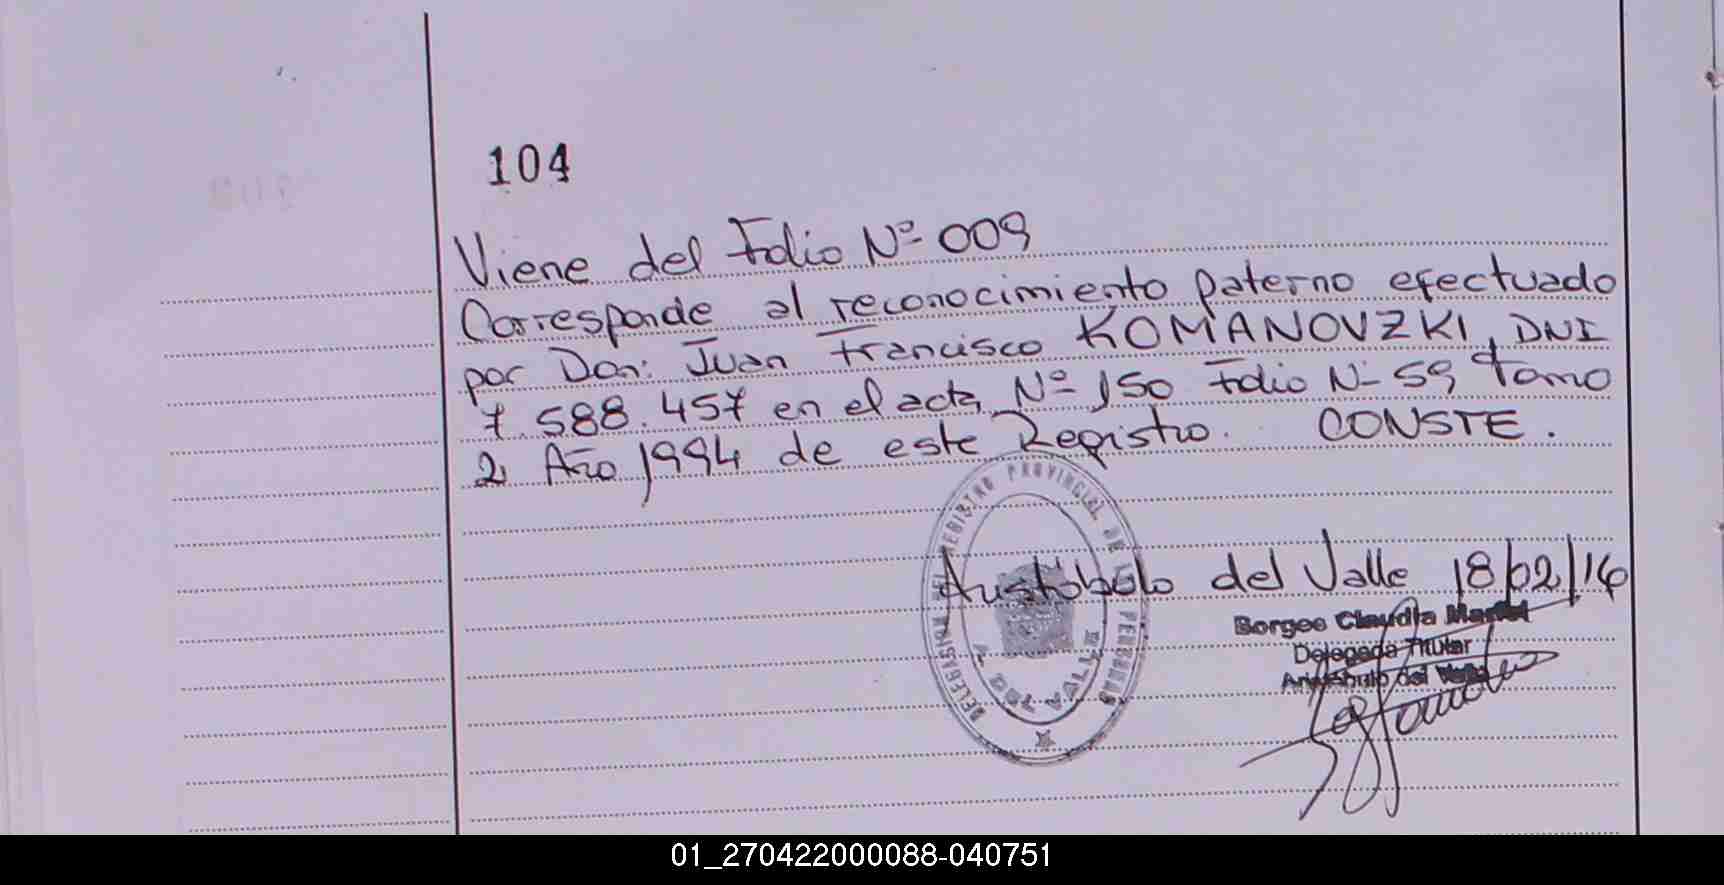 104
Viene del Folio Nº 009
Corresponde al reconocimiento paterno efectuado
por Don: Juan Francisco KOMANOVZKI, DNI
7.588.457 en el acta Nº 150 Folio Nº 59 Tomo
2 Año 1994 de este Registro. CONSTE.
DELEGACION DEL REGISTRO PROVINCIAL DE LAS PERSONAS
A. DEL VALLE
Aristóbulo del Valle 18/02/16
Borges Claudia
Delegada Titular
Aristóbulo del Valle
01_270422000088-040751